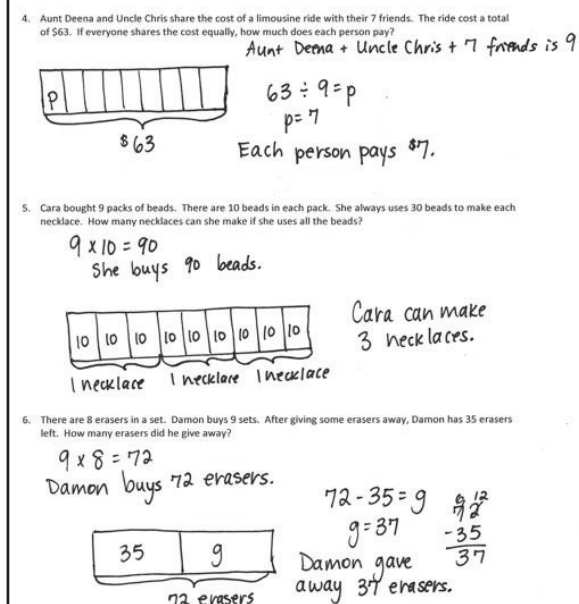 4. Aunt Deena and Uncle Chris share the cost of a limousine ride with their 7 friends. The ride cost a total
of $63. If everyone shares the cost equally, how much does each person pay?
Aunt Deena + Uncle Chris + 7 friends is 9
P
$63
63 ÷ 9 = p
p = 7
Each person pays $7.
5. Cara bought 9 packs of beads. There are 10 beads in each pack. She always uses 30 beads to make each
necklace. How many necklaces can she make if she uses all the beads?
9 x 10 = 90
She buys 90 beads.
10 10 10 10 10 10 10 10 10
1 necklace 1 necklace 1 necklace
Cara can make
3 necklaces.
6. There are 8 erasers in a set. Damon buys 9 sets. After giving some erasers away, Damon has 35 erasers
left. How many erasers did he give away?
9 x 8 = 72
Damon buys 72 erasers.
35 g
72 erasers
72 - 35 = g
g = 37
6 12
72
-35
37
Damon gave
away 37 erasers.